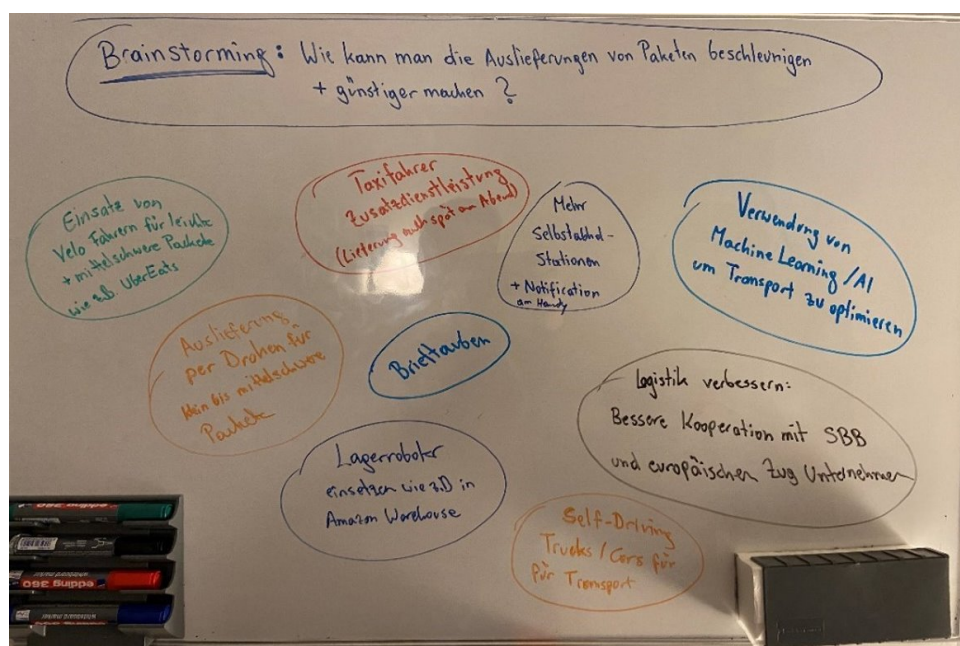 Brainstorming: Wie kann man die Auslieferungen von Paketen beschleunigen
+ günstiger machen ?
Einsatz von
Velo Fahrern für leichte
+ mittelschwere Packete
wie z.B. UberEats
Taxifahrer
Zusatzdienstleistung
(Lieferung auch spät am Abend)
Mehr
Selbstabhol-
Stationen
+ Notification
am Handy
Verwendung von
Machine Learning / AI
um Transport zu optimieren
Auslieferung
per Drohen für
klein bis mittelschwere
Packete
Brieftauben
Logistik verbessern:
Bessere Kooperation mit SBB
und europäischen Zug Unternehmen
Lagerroboter
einsetzen wie z.B in
Amazon Warehouse
Self-Driving
Trucks / Cars für
für Transport
edding 360
whiteboard marker